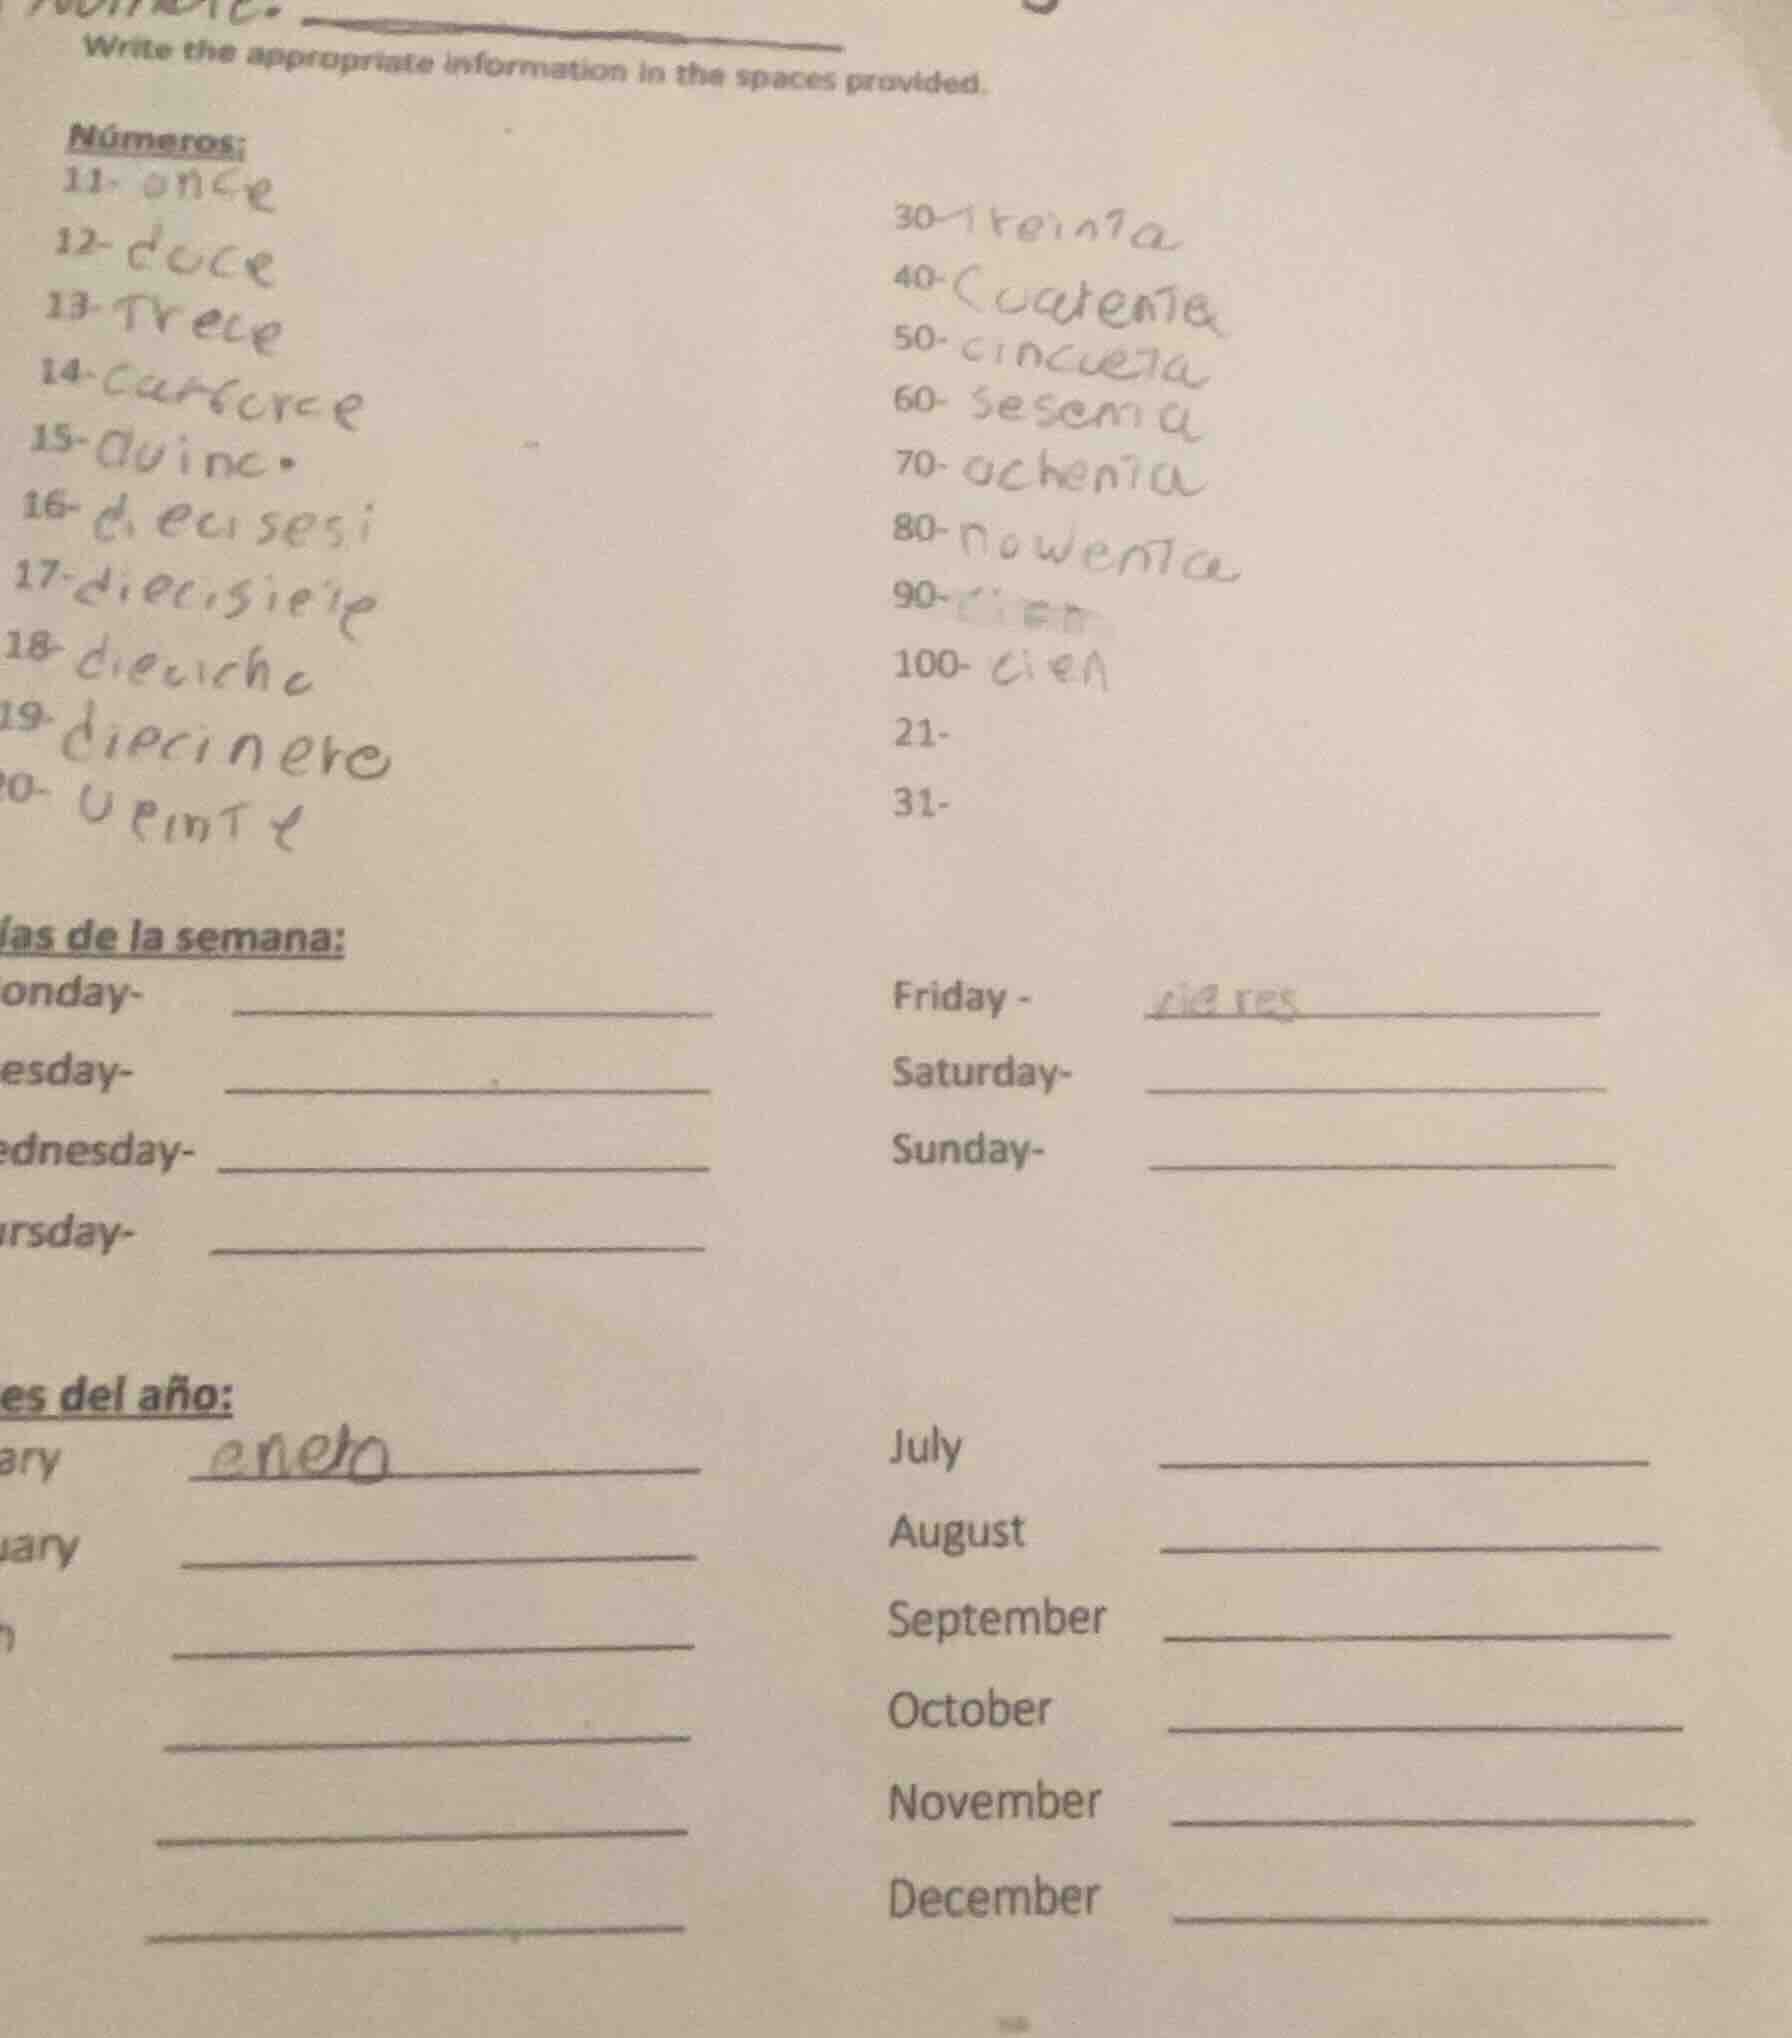 Write the appropriate information in the spaces provided.
Números:
11- once
12- doce
13- Trece
14- carforce
15- quinc
16- diecisesi
17- diecisiete
18- diecicho
19- diecinero
20- veinte
30- treinta
40- Cuatenta
50- cincueta
60- sesenta
70- ochenta
80- nowenta
90- cien
100- cien
21-
31-
ías de la semana:
onday-
esday-
ednesday-
ursday-
Friday - vieres
Saturday-
Sunday-
es del año:
ary enero
uary
July
August
September
October
November
December